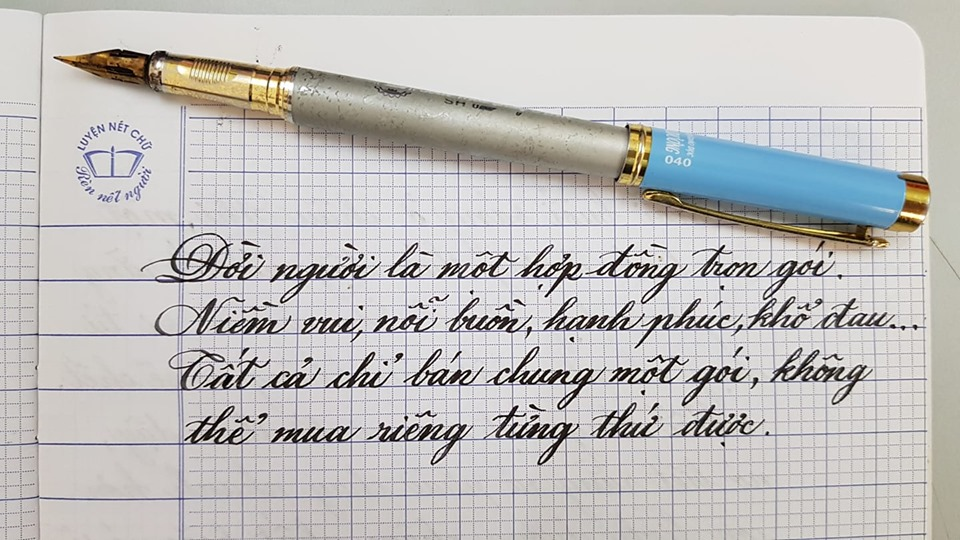 LUYỆN NÉT CHỮ
Rèn nết người
SH
040
Đời người là một hợp đồng trọn gói.
Niềm vui, nỗi buồn, hạnh phúc, khổ đau...
Tất cả chỉ bán chung một gói, không
thể mua riêng từng thứ được.